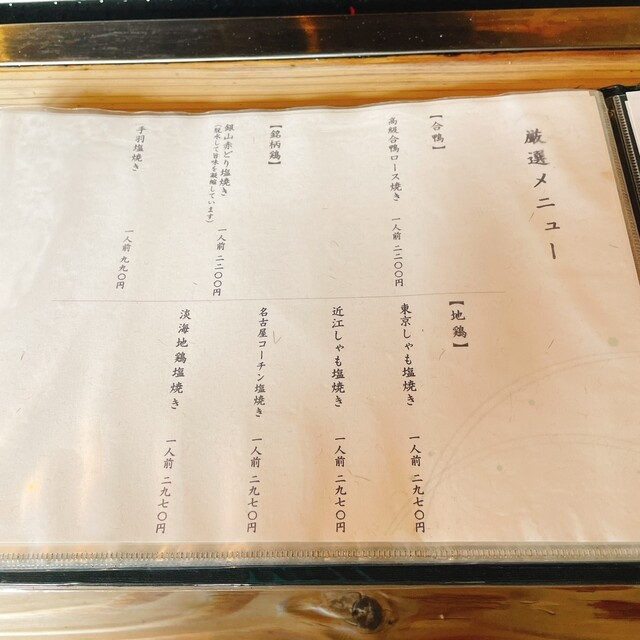 厳選メニュー
【合鴨】
高級合鴨ロース焼き 一人前 二二〇〇円
【銘柄鶏】
銀山赤どり塩焼き 一人前 二二〇〇円
(脱水して旨味を凝縮しています)
手羽塩焼き 一人前 九九〇円
【地鶏】
東京しゃも塩焼き 一人前 二九七〇円
近江しゃも塩焼き 一人前 二九七〇円
名古屋コーチン塩焼き 一人前 二九七〇円
淡海地鶏塩焼き 一人前 二九七〇円